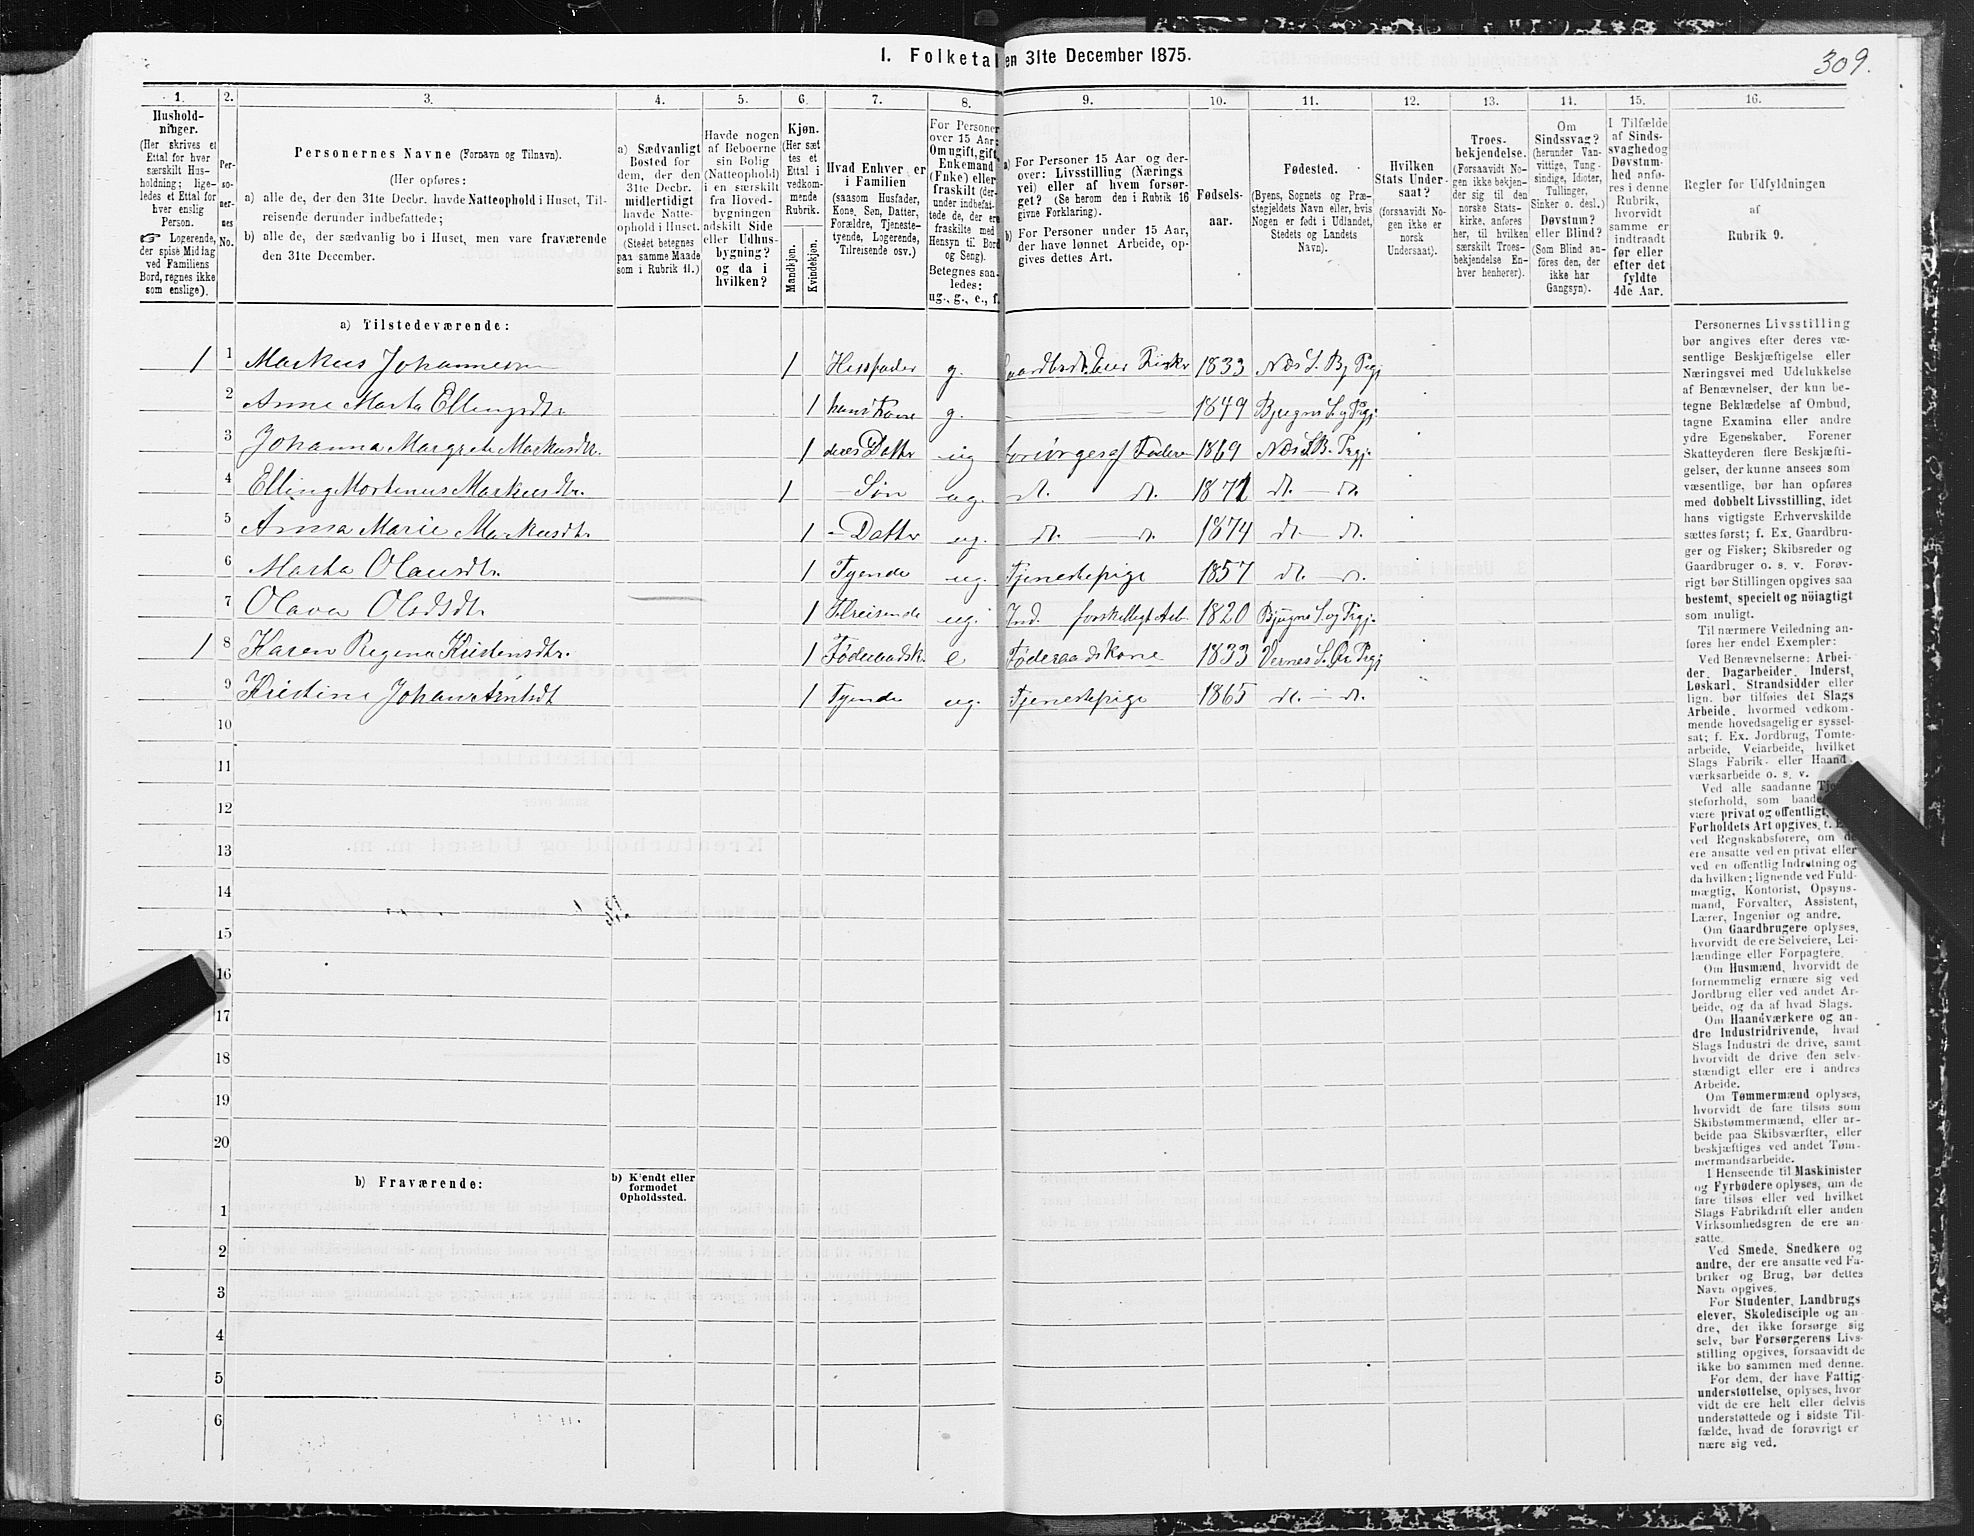 I. Folketal en 31te December 1875.
309.
1. 2. 3. 4. 5. 6. 7. 8. 9. 10. 11. 12. 13. 14. 15. 16.
Hushold-
ninger.
(Her skrives et
Ettal for hver
særskilt Hus-
holdning; lige-
ledes et Ettal for
hver enslig
Person.
☞ Logerende,
der spise Middag
ved Familiens
Bord, regnes ikke
som enslige).
Per-
so-
ner-
nes
No.
Personernes Navne (Fornavn og Tilnavn).
(Her opføres:
a) alle de, der den 31te Decbr. havde Natteophold i Huset, Til-
reisende derunder indbefattede;
b) alle de, der sædvanlig bo i Huset, men vare fraværende
den 31te December.
a) Sædvanligt
Bosted for
dem, der den
31te Decbr.
midlertidigt
havde Natte-
ophold i Huset.
(Stedet betegnes
paa samme Maade
som i Rubrik 11.)
Havde nogen
af Beboerne
sin Bolig
(Natteophold)
i en særskilt
fra Hoved-
bygningen
adskilt Side
eller Udhus-
bygning?
og da i
hvilken?
Kjøn.
(Her sæt
tes et
Ettal i
vedkom-
mende
Rubrik.
Mandkjøn.
Kvindekjøn.
Hvad Enhver er
i Familien
(saasom Husfader,
Kone, Søn, Datter,
Forældre, Tjeneste-
tyende, Logerende,
Tilreisende osv.)
For Personer
over 15 Aar:
Om ugift, gift,
Enkemand
(Enke) eller
fraskilt (der-
under indbefat-
tede de, der ere
fraskilte med
Hensyn til Bord
og Seng).
Betegnes saa-
ledes:
ug., g., e., f.
a) For Personer 15 Aar og der-
over: Livsstilling (Nærings
vei) eller af hvem forsør-
get? (Se herom den i Rubrik 16
givne Forklaring).
b) For Personer under 15 Aar,
der have lønnet Arbeide, op-
gives dettes Art.
Fødsels-
aar.
Fødested.
(Byens, Sognets og Præ-
stegjeldets Navn eller, hvis
Nogen er født i Udlandet,
Stedets og Landets
Navn).
Hvilken
Stats Under-
saat?
(forsaavidt No-
gen ikke er
norsk
Undersaat).
Troes-
bekjendelse.
(Forsaavidt No-
gen ikke bekjen-
der sig til den
norske Stats-
kirke, anføres
her, til hvilken
særskilt Troes-
bekjendelse En-
hver henhører).
Om
Sindssvag?
(herunder Van-
vittige, Tung-
sindige, Idioter,
Tullinger,
Sinker o. desl.)
Døvstum?
eller Blind?
(Som Blind an-
føres den, der
ikke har
Gangsyn).
I Tilfælde
af Sinds-
svaghed og
Døvstum-
hed anfø-
res i denne
Rubrik,
hvorvidt
samme er
indtraadt
før eller
efter det
fyldte
4de Aar.
Regler før Udfyldningen
af
Rubrik 9.
a) Tilstedeværende:
1 1 Markus Johannesen 1 Husfader g. Gaardbr. Leier Fisker 1833 Næs S. Bj Prgj
2 Anne Marta Ellingsdtr 1 hans Kone g. 1849 Bjugns S. og Prgj.
3 Johanna Margrete Markusdtr. 1 deres Datter ug forsørges af Faderen 1869 Næs S B. Prgj.
4 Elling Mortenus Markusdtr. 1 — Søn ug. dt. dt. 1871 dt. — dt.
5 Anna Marie Markusdtr. 1 — Datter ug. dt. dt. 1874 dt. — dt.
6 Marta Olausdtr. 1 Tyende ug. Tjenestepige 1857 dt. — dt.
7 Olava Olsdtr 1 Tilreisende ug. Ind. forskelligt Arb. 1820 Bjugns S. og Prgj.
1 8 Karen Regina Kristensdtr. 1 Føderaadsk. e Føderaadskone 1833 Vernes S. Ør. Prgj
9 Kristine Johan Arntsdt 1 Tyende ug. Tjenestepige 1865 dt. — dt.
10
11
12
13
14
15
16
17
18
19
20
b) Fraværende:
b) Kjendt eller
formodet
Opholdssted.
1
2
3
4
5
6
Personernes Livsstilling
bør angives efter deres væ-
sentlige Beskjæftigelse eller
Næringsvei med Udelukkelse
af Benævnelser, der kun be-
tegne Beklædelse af Ombud,
tagne Examina eller andre
ydre Egenskaber. Forener
Skatteyderen flere Beskjæfti-
gelser, der kunne ansees som
væsentlige, bør han opføres
med dobbelt Livsstilling, idet
hans vigtigste Erhvervskilde
sættes først; f. Ex. Gaardbru-
ger og Fisker; Skibsreder og
Gaardbruger o. s. v. Forøv-
rigt bør Stillingen opgives saa
bestemt, specielt og nøiagtigt
som muligt.
Til nærmere Veiledning an-
føres her endel Exempler:
Ved Benævnelserne: Arbei-
der, Dagarbeider, Inderst,
Løskarl, Strandsidder eller
lign. bør tilføies det Slags
Arbeide, hvormed vedkom-
mende hovedsagelig er syssel-
sat; f. Ex. Jordbrug, Tomte-
arbeide, Veiarbeide, hvilket
Slags Fabrik- eller Haand-
værksarbeide o. s. v.
Ved alle saadanne
steforhold, som baade
være privat og offentligt,
Forholdets Art opgives,
ved Regnskabsførere, om
ere ansatte ved en privat eller
ved en offentlig Indretning og
da hvilken; lignende ved Fuld-
mægtig, Kontorist, Opsyns-
mand, Forvalter, Assistent,
Lærer, Ingeniør og andre.
Om Gaardbrugere oplyses,
hvorvidt de ere Selveiere, Lei-
lændinge eller Forpagtere.
Om Husmænd, hvorvidt de
fornemmelig ernære sig ved
Jordbrug eller ved andet Ar-
beide, og da af hvad Slags.
Om Haandværkere og an-
dre Industridrivende, hvad
Slags Industri de drive, samt
hvorvidt de drive den selv-
stændigt eller ere i andres
Arbeide.
Om Tømmermænd oplyses,
hvorvidt de fare tilsøs som
Skibstømmermænd, eller ar-
beide paa Skibsværfter, eller
beskjæftiges ved andet Tøm-
mermandsarbeide.
I Henseende til Maskinister
og Fyrbødere oplyses, om de
fare tilsøs eller ved hvilket
Slags Fabrikdrift eller anden
Virksomhedsgren de ere an-
satte.
Ved Smede, Snedkere og
andre, der ere ansatte ved Fa-
briker og Brug, bør dettes
Navn opgives.
For Studenter, Landbrugs
elever, Skoledisciple og an-
dre, der ikke forsørge sig
selv, bør Forsørgerens Livs-
stilling opgives, forsaavidt de
ikke bo sammen med denne.
For dem, der have Fattig-
understøttelse, oplyses, hvor
vidt de ere helt eller delvis
understøttede og i sidste Til-
fælde, hvad de forøvrigt er
nære sig ved.